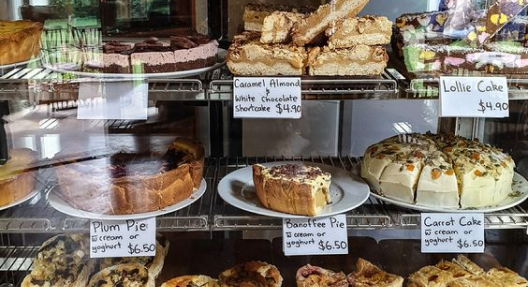 Caramel Almond
&
White Chocolate
Shortcake $4.90
Lollie Cake
$4.90
Plum Pie
cream or
yoghurt $6.50
Banoffee Pie
cream or
yoghurt $6.50
Carrot Cake
cream or
yoghurt $6.50